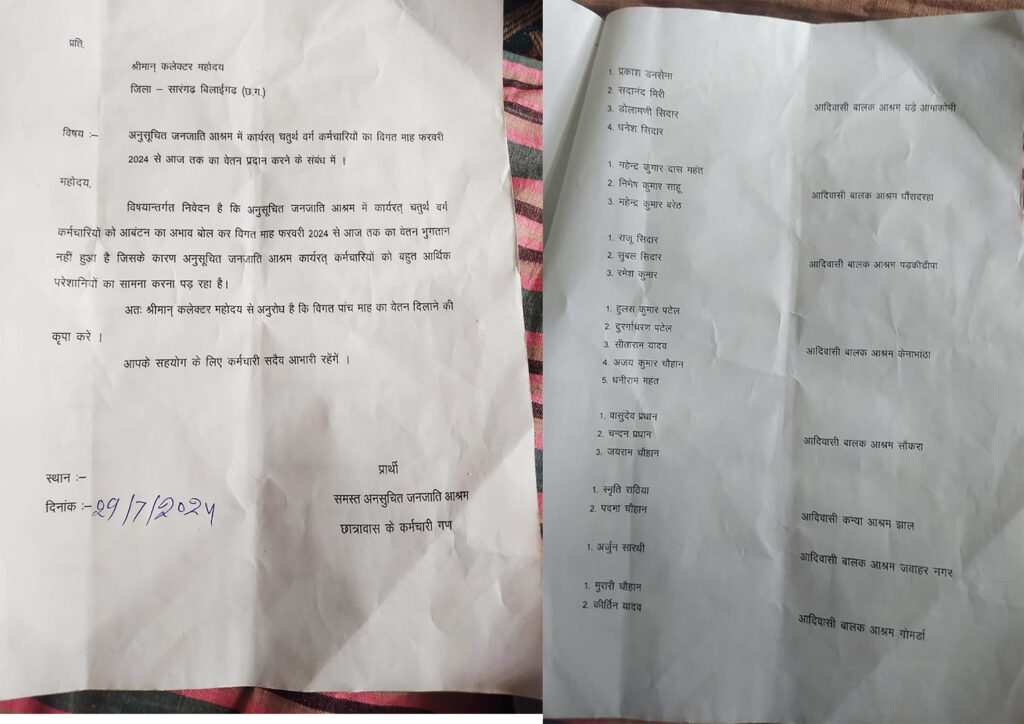 प्रति,
श्रीमान् कलेक्टर महोदय
जिला – सारंगढ बिलाईगढ (छ.ग.)
विषय :– अनुसूचित जनजाति आश्रम में कार्यरत् चतुर्थ वर्ग कर्मचारियों का विगत माह फरवरी
2024 से आज तक का वेतन प्रदान करने के संबंध में ।
महोदय,
विषयान्तर्गत निवेदन है कि अनुसूचित जनजाति आश्रम में कार्यरत् चतुर्थ वर्ग
कर्मचारियों को आबंटन का अभाव बोल कर विगत माह फरवरी 2024 से आज तक का वेतन भुगतान
नहीं हुआ है जिसके कारण अनुसूचित जनजाति आश्रम कार्यरत् कर्मचारियों को बहुत आर्थिक
परेशानियों का सामना करना पड़ रहा है।
अतः श्रीमान् कलेक्टर महोदय से अनुरोध है कि विगत पांच माह का वेतन दिलाने की
कृपा करें ।
आपके सहयोग के लिए कर्मचारी सदैव आभारी रहेंगें ।
स्थान :–
दिनांक :– 29/7/2024
प्रार्थी
समस्त अनसुचित जनजाति आश्रम
छात्रावास के कर्मचारी गण
1. प्रकाश डनसेना
2. सदानंद मिरी
3. डोलामणी सिदार
4. धनेश सिदार
आदिवासी बालक आश्रम बड़े आमाकोनी
1. महेन्द्र कुमार दास महंत
2. निमेष कुमार साहू
3. महेन्द्र कुमार बरेठ
आदिवासी बालक आश्रम धौंरादरहा
1. राजू सिदार
2. सुबल सिदार
3. रमेश कुमार
आदिवासी बालक आश्रम पड़कीडीपा
1. हुलस कुमार पटेल
2. दुरगाचरण पटेल
3. सीताराम यादव
4. अजय कुमार चौहान
5. धनीराम महंत
आदिवासी बालक आश्रम केनाभांठा
1. वासुदेव प्रधान
2. चन्दन प्रधान
3. जयराम चौहान
आदिवासी बालक आश्रम साँकरा
1. स्मृति राठिया
2. पदमा चौहान
आदिवासी कन्या आश्रम झाल
1. अर्जुन सारथी
आदिवासी बालक आश्रम जवाहर नगर
1. मुरारी चौहान
2. कीर्तिन यादव
आदिवासी बालक आश्रम गोमर्डा